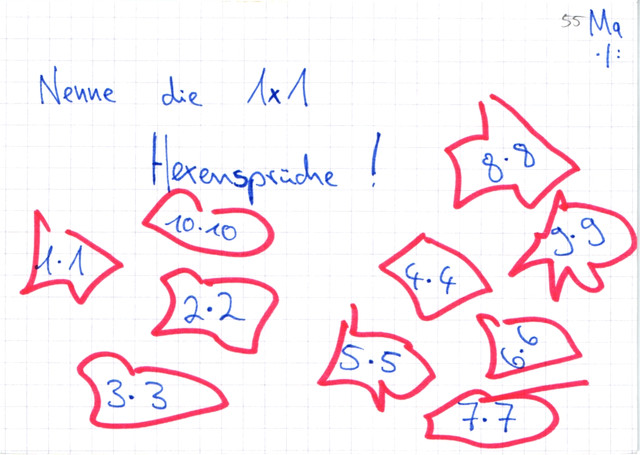 55 Ma
·/:
Nenne die 1x1
Hexensprüche!
8·8
10·10
9·9
1·1
4·4
2·2
5·5
6·6
3·3
7·7